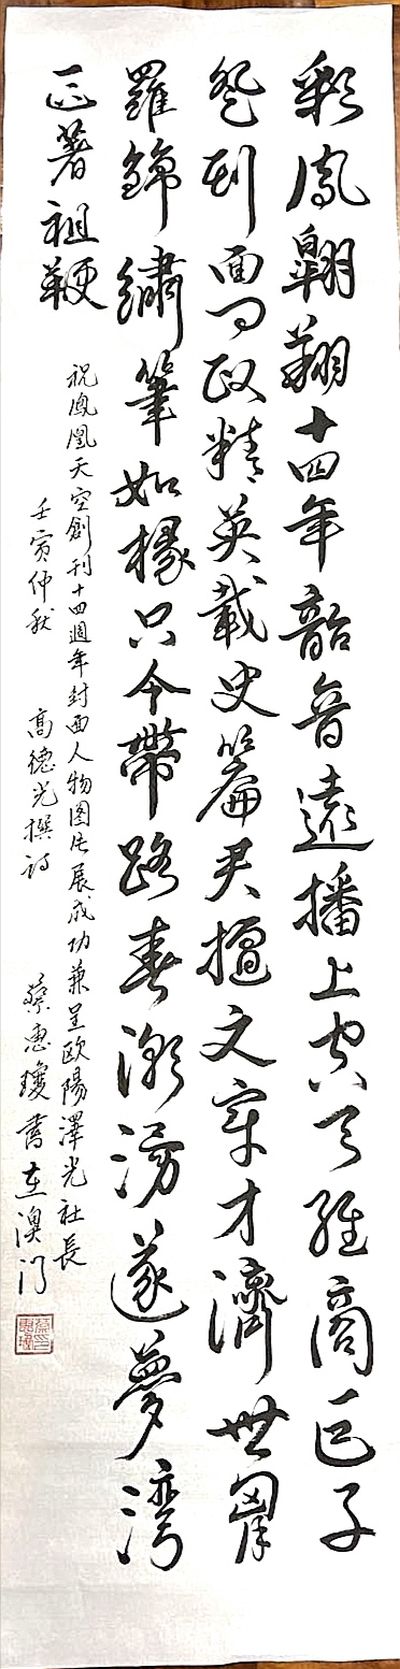 彩鳳翱翔十四年韶音遠播上雲天經商巨子
登刊面為政精英載史篇君擅文章才濟世胸
羅錦繡筆如椽只今帶路春潮湧逐夢灣
區著祖鞭
祝鳳凰天空創刊十四週年封面人物图片展成功兼呈歐陽澤光社長
壬寅仲秋 高德光撰詩 蔡惠瓊書在澳门